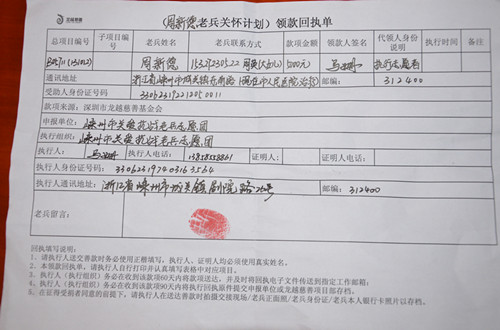 龙越慈善
（周新德老兵关怀计划）领款回执单
总项目编号 子项目编号 老兵姓名 老兵联系方式 款项金额 领款人签名 代领人身份说明 执行时间 备注
周新德 5000元 执行志愿者
通讯地址 浙江省嵊州市城关镇 邮编： 312400
受助人身份证号码 330623192212050011
款项来源：深圳市龙越慈善基金会
申报单位： 嵊州市关爱抗战老兵志愿团
执行组织： 嵊州市关爱抗战老兵志愿团
执行人： 执行人电话： 13858558861 证明人： 证明人电话：
执行人身份证号码： 330623192403163564
执行人通讯地址： 浙江省嵊州市城关镇剧院路26号 邮编： 312400
老兵留言：
回执填写说明：
1、请执行人送交善款时务必使用正楷填写，执行人、证明人均必须使用真实姓名。
2、本领款回执单，请执行人自行打印并认真填写表格中对应项目。
3、执行人（执行组织）务必在收到该款项60天内将款项送达，并及时将回执电子文件传送到指定工作邮箱；
4、执行人（执行组织）务必在收到该款项90天内将执行回执原件提交申报单位或龙越慈善项目部存档。
5、在征得受助者同意的前提下，请执行人在送达善款时拍摄交接现场/老兵正面照/老兵身份证/老兵本人银行卡照片以存档。